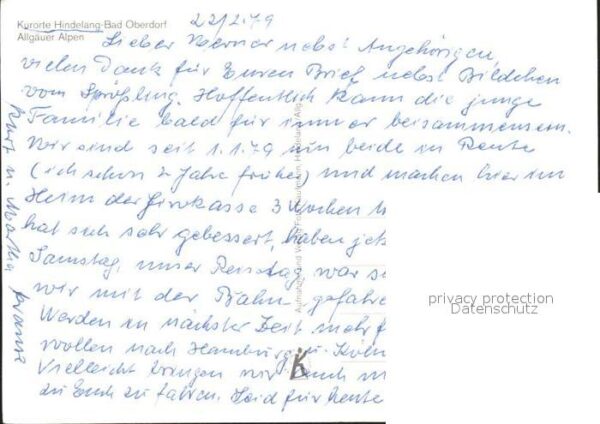 Kurorte Hindelang-Bad Oberdorf
Allgäuer Alpen
22/2.79
Lieber Werner nebst Angehörigen,
vielen Dank für Euren Brief nebst Bildchen
vom Sprößling. Hoffentlich kann die junge
Familie bald für immer beisammensein.
Wir sind seit 1.1.79 nun beide in Rente
(ich schon 2 Jahre früher) und machen hier im
Heim der 3 Wochen
hat sich sehr gebessert, haben
Samstag, unser war
wir mit der Bahn gefahre
Werden in nächster Zeit mehr
wollen nach Hamburg u. Köln
Vielleicht bringen wir Euch
zu Euch zu fahren. Seid für heute
Kurt u. Martha
K
privacy protection
Datenschutz